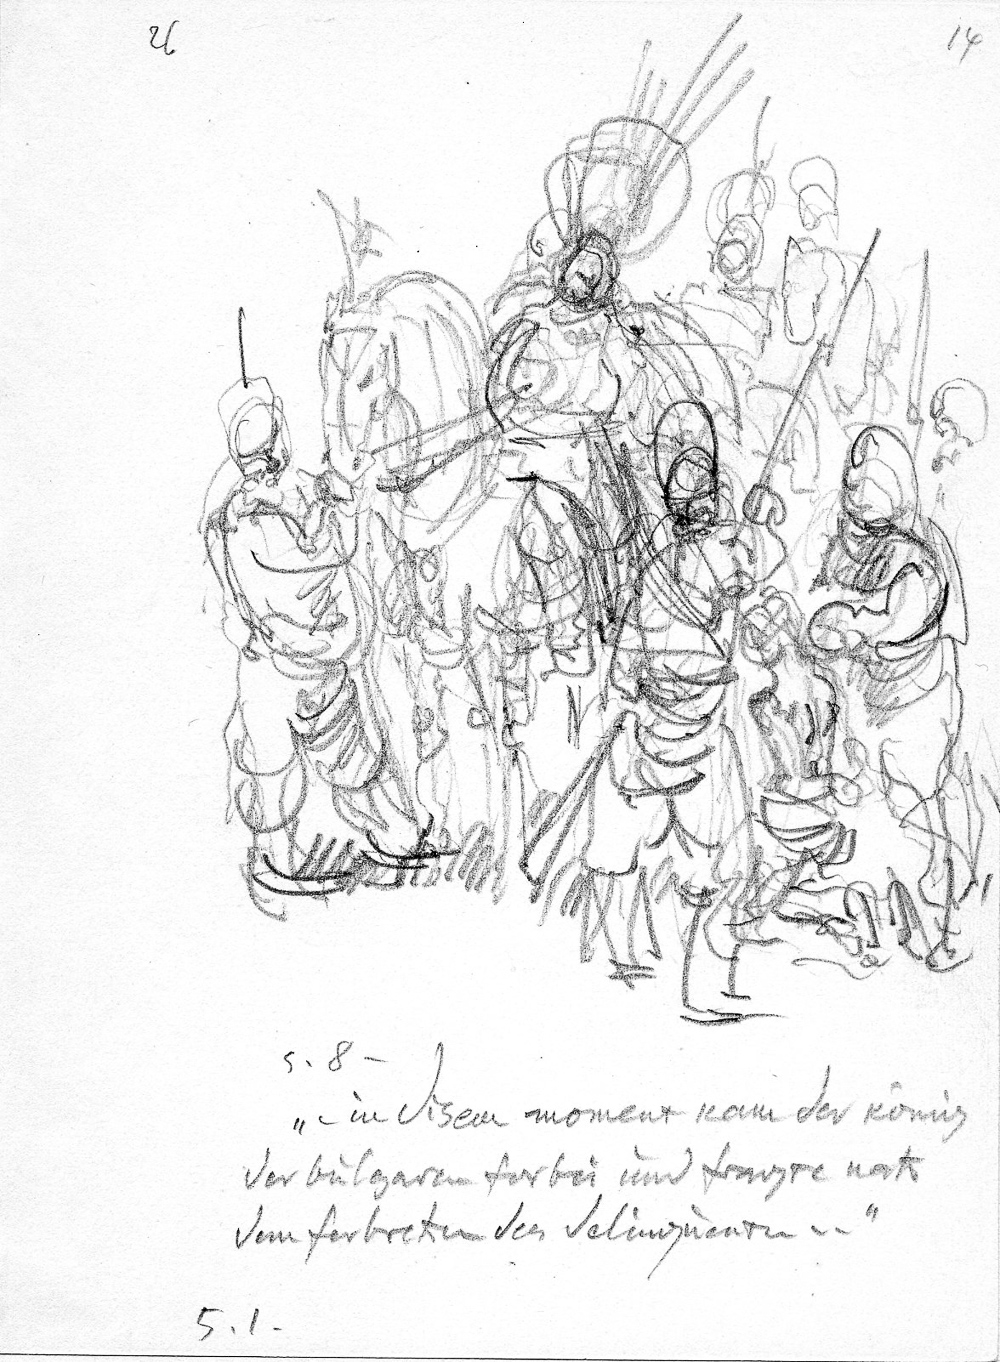 26
14
s. 8 –
„– in disem moment kam der könig
der bulgaren forbei und fragte nach
dem ferbrechen des delinquenten – –"
5.1.